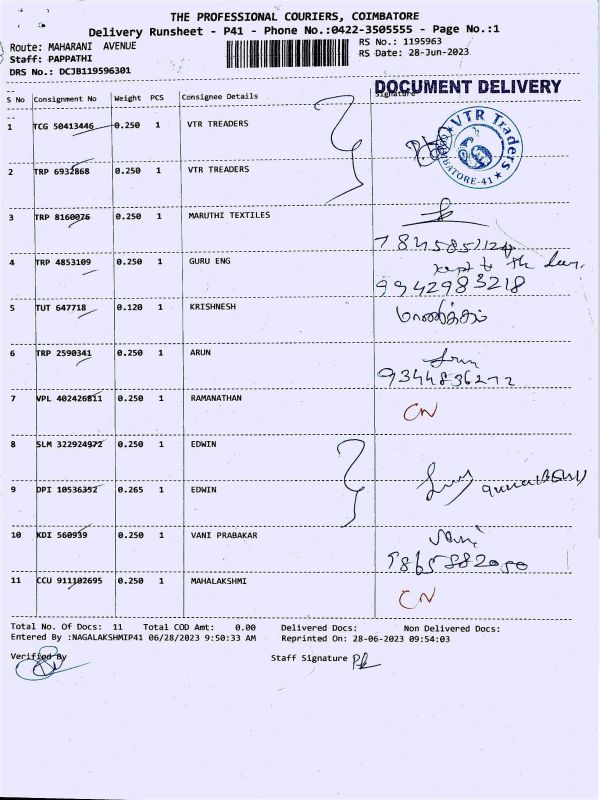 THE PROFESSIONAL COURIERS, COIMBATORE
Delivery Runsheet - P41 - Phone No.:0422-3505555 - Page No.:1
Route: MAHARANI AVENUE
RS No.: 1195963
Staff: PAPPATHI
RS Date: 28-Jun-2023
DRS No.: DCJB119596301
DOCUMENT DELIVERY
S No Consignment No Weight PCS Consignee Details Signature
1 TCG 50413446 0.250 1 VTR TREADERS
VTR Traders
BATORE-41
2 TRP 6932868 0.250 1 VTR TREADERS
3 TRP 8160076 0.250 1 MARUTHI TEXTILES
4 TRP 4853109 0.250 1 GURU ENG
kept to the door
9942983218
5 TUT 647718 0.120 1 KRISHNESH
6 TRP 2590341 0.250 1 ARUN
9344836272
7 VPL 402426811 0.250 1 RAMANATHAN
CN
8 SLM 322924972 0.250 1 EDWIN
9 DPI 10536352 0.265 1 EDWIN
10 KDI 560939 0.250 1 VANI PRABAKAR
Vani
9865882050
11 CCU 911102695 0.250 1 MAHALAKSHMI
CN
Total No. Of Docs: 11 Total COD Amt: 0.00 Delivered Docs: Non Delivered Docs:
Entered By :NAGALAKSHMIP41 06/28/2023 9:50:33 AM Reprinted On: 28-06-2023 09:54:03
Verified By
Staff Signature